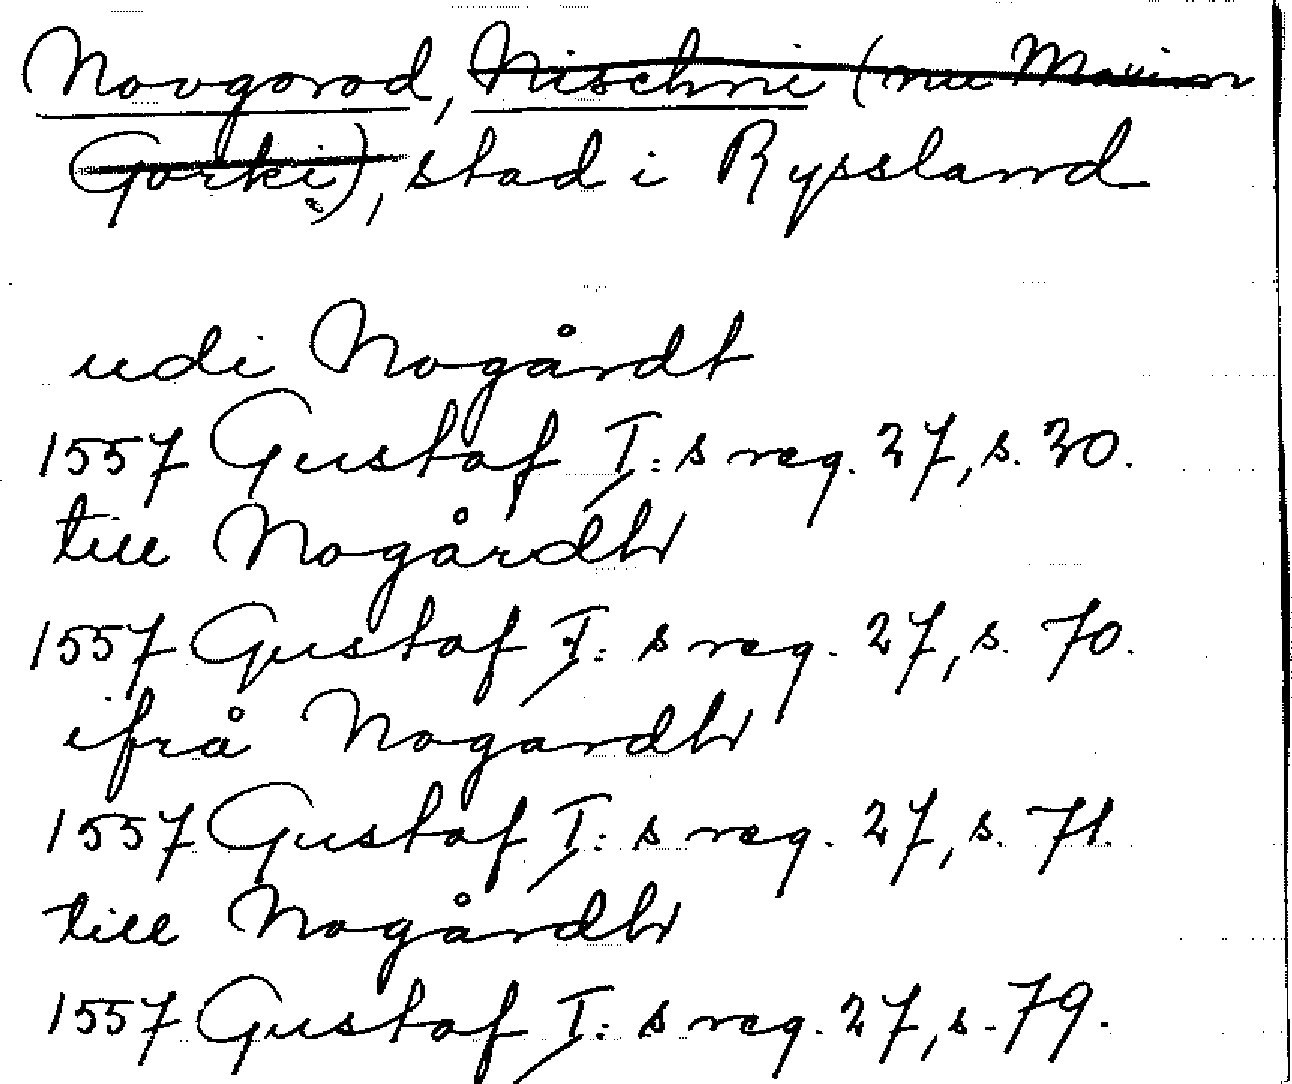 Novgorod, Nischni (nu Maxim
Gorki), stad i Ryssland
udi Nogårdt
1557 Gustaf I:s reg. 27, s. 30.
till Nogårdh
1557 Gustaf I:s reg. 27, s. 70.
ifrå Nogardh
1557 Gustaf I:s reg. 27, s. 71.
till Nogårdh
1557 Gustaf I:s reg. 27, s. 79.